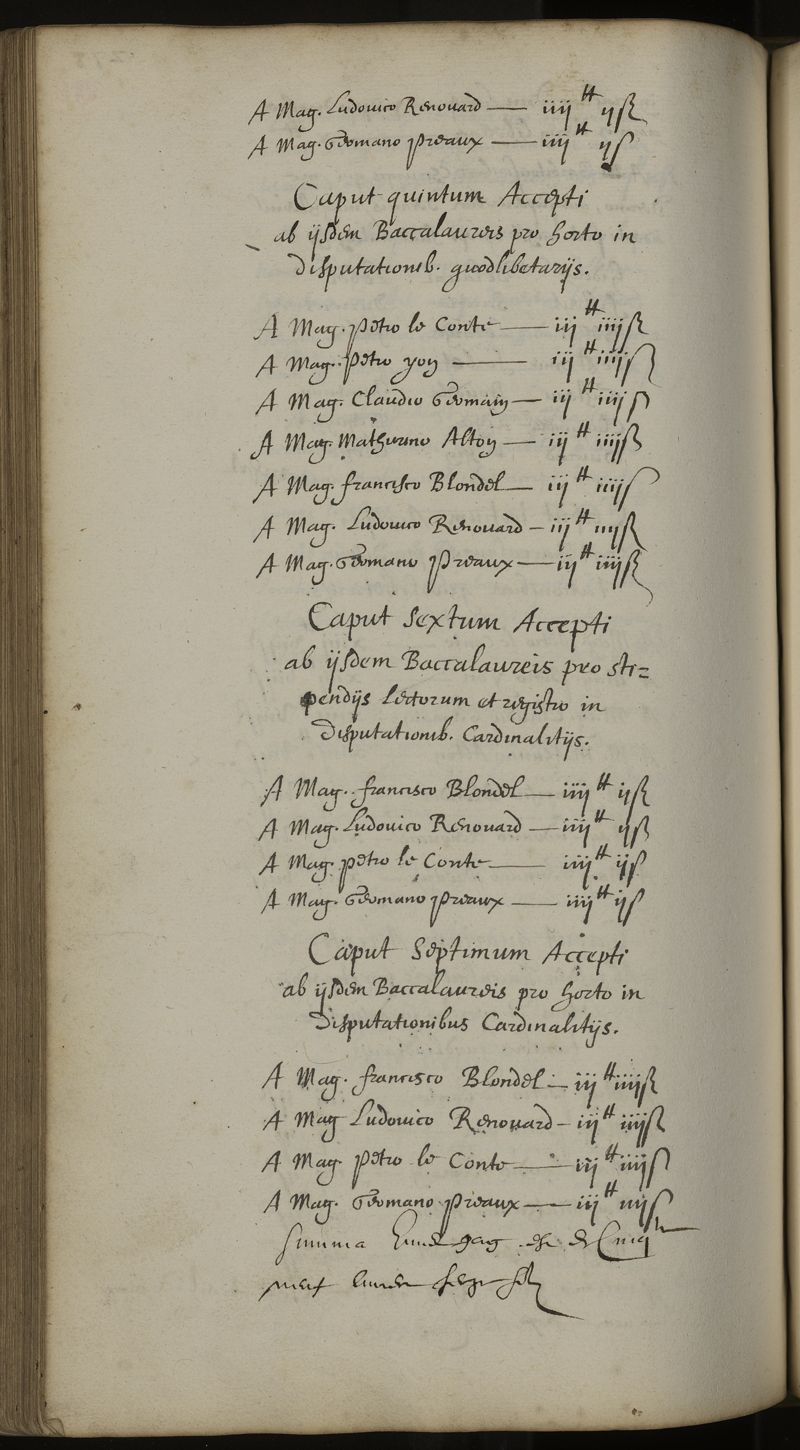 A Mag. Ludovico Renouard — iiij ₶ ijß
A Mag. Germano preaux — iiij ₶ ijß
Caput quintum Accepti
ab ijsdem Baccalaureis pro horto in
disputationib. quodlibetarijs.
A Mag. petro le Conte — iij ₶ iiijß
A Mag. petro yon — iij ₶ iiijß
A Mag. Claudio Germain — iij ₶ iiijß
A Mag. Mathurino Alton — iij ₶ iiijß
A Mag. francisco Blondel — iij ₶ iiijß
A Mag. Ludovico Renouard — iij ₶ iiijß
A Mag. Germano preaux — iij ₶ iiijß
Caput Sextum Accepti
ab ijsdem Baccalaureis pro sti=
pendijs Lectorum et registro in
disputationib. Cardinalitijs.
A Mag. francisco Blondel — iiij ₶ ijß
A Mag. Ludovico Renouard — iiij ₶ ijß
A Mag. petro le Conte — iiij ₶ ijß
A Mag. Germano preaux — iiij ₶ ijß
Caput Septimum Accepti
ab ijsdem Baccalaureis pro horto in
disputationibus Cardinalitijs.
A Mag. francisco Blondel — iij ₶ iiijß
A Mag Ludovico Renouard — iij ₶ iiijß
A Mag petro le Conte — iij ₶ iiijß
A Mag. Germano preaux — iij ₶ iiijß
summa
neuf livres